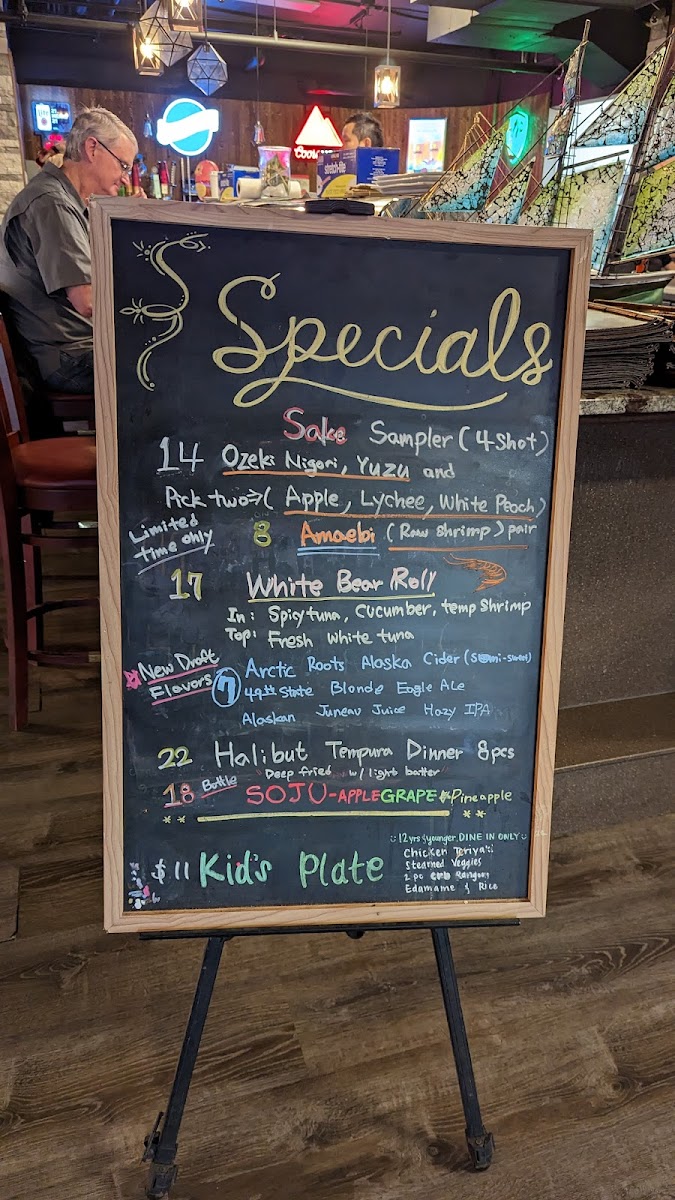 Specials
Sake Sampler (4 shot)
14 Ozeki Nigori, Yuzu and
Pick two⇒( Apple, Lychee, White Peach)
Limited time only
8 Amaebi (Raw shrimp) pair
17 White Bear Roll
In: Spicy tuna, Cucumber, temp shrimp
Top: Fresh white tuna
New Draft Flavors
7
Arctic Roots Alaska Cider (Semi-sweet)
49th State Blonde Eagle Ale
Alaskan Juneau Juice Hazy IPA
22 Halibut Tempura Dinner 8pcs
"Deep fried w/ light batter"
18 Bottle SOJU-APPLE GRAPE & Pineapple
** **
12 yrs & younger, DINE IN ONLY
$11 Kid's Plate
Chicken Teriyaki
Steamed Veggies
2 pc Crab Rangoon
Edamame & Rice
Coors
stretch-tite